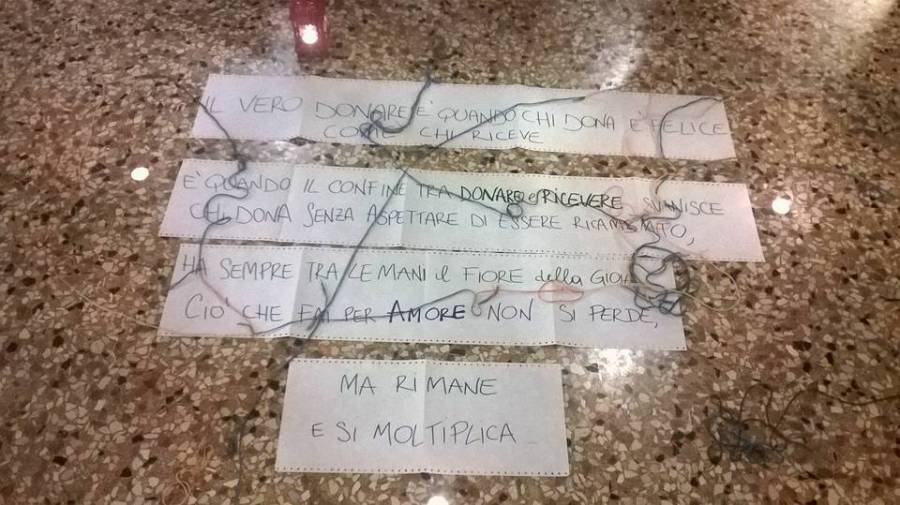 IL VERO DONARE È QUANDO CHI DONA È FELICE
COME CHI RICEVE
E' QUANDO IL CONFINE TRA DONARE e RICEVERE SVANISCE
CHI DONA SENZA ASPETTARE DI ESSERE RICAMBIATO,
HA SEMPRE TRA LE MANI il FIORE della GIOIA
CIO' CHE FAI PER AMORE NON SI PERDE,
MA RIMANE
E SI MOLTIPLICA